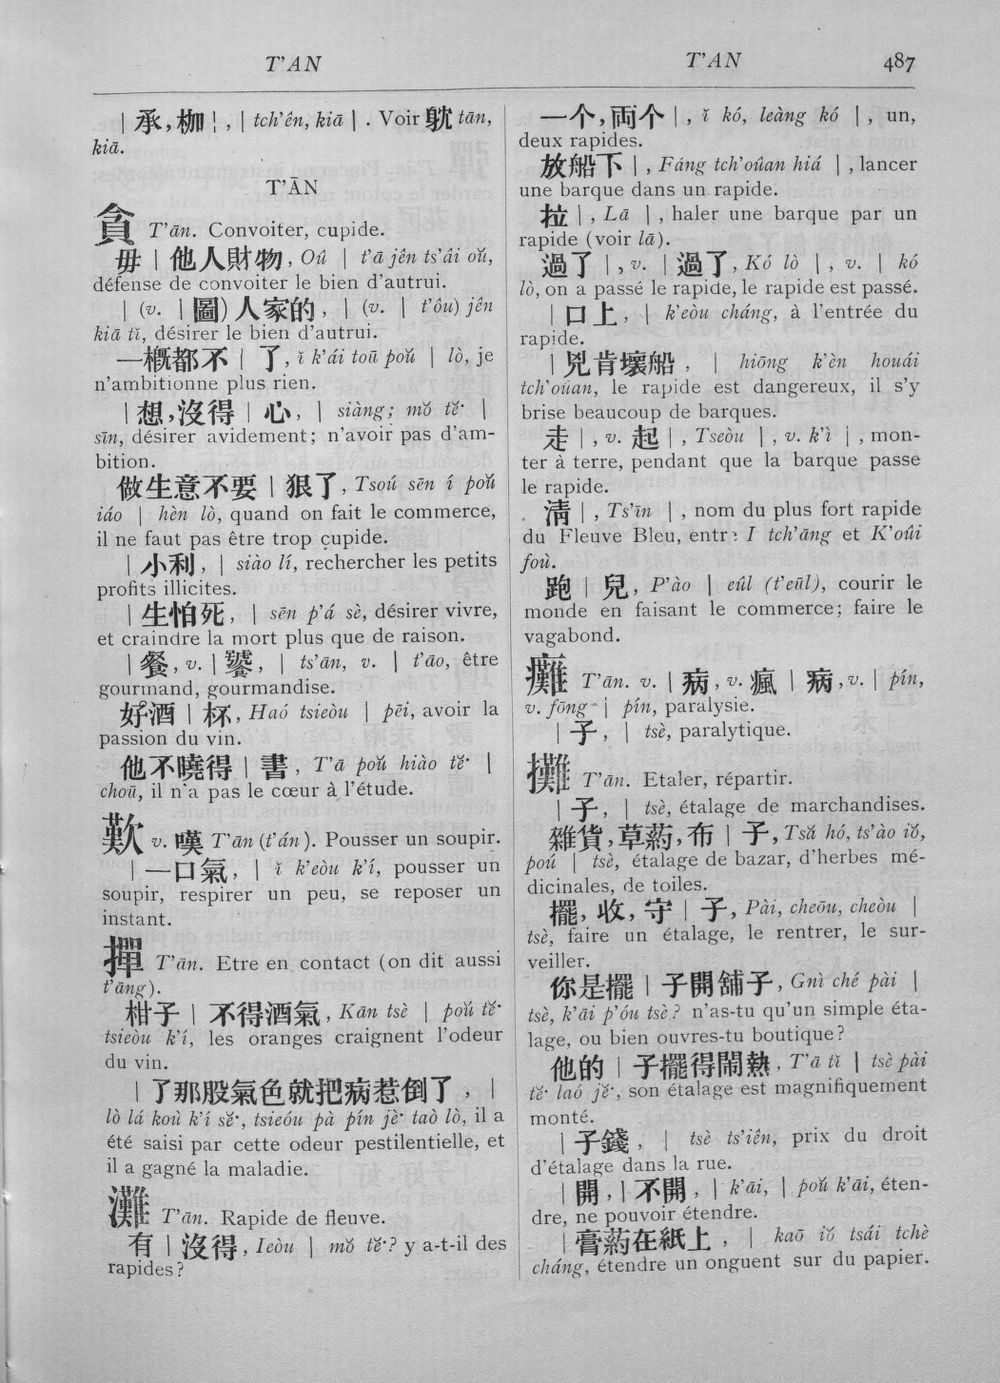 T'AN
T'AN 487
| 承,枷 |, | tch'ên, kiā | . Voir 躭 tān,
kiā.
T'ĀN
貪 T'ān. Convoiter, cupide.
毋 | 他人財物, Oû | t'ā jên ts'âi oŭ,
défense de convoiter le bien d'autrui.
| (v. | 圖) 人家的, | (v. | t'ôu) jên
kiā tĭ, désirer le bien d'autrui.
一槪都不 | 了, ĭ k'ái toū poŭ | lò, je
n'ambitionne plus rien.
| 想,沒得 | 心, | siàng; mŏ tĕ· |
sīn, désirer avidement; n'avoir pas d'am-
bition.
做生意不要 | 狠了, Tsoú sēn í poŭ
iáo | hèn lò, quand on fait le commerce,
il ne faut pas être trop cupide.
| 小利, | siào lí, rechercher les petits
profits illicites.
| 生怕死, | sēn p'á sè, désirer vivre,
et craindre la mort plus que de raison.
| 餐, v. | 饕, | ts'ān, v. | t'āo, être
gourmand, gourmandise.
好酒 | 杯, Haó tsieòu | pēi, avoir la
passion du vin.
他不曉得 | 書, T'ā poŭ hiào tĕ· |
choū, il n'a pas le cœur à l'étude.
歎 v. 嘆 T'ān (t'án). Pousser un soupir.
| 一口氣, | ĭ k'eòu k'í, pousser un
soupir, respirer un peu, se reposer un
instant.
撣 T'ān. Etre en contact (on dit aussi
t'āng).
柑子 | 不得酒氣, Kān tsè | poŭ tĕ·
tsieòu k'í, les oranges craignent l'odeur
du vin.
| 了那股氣色就把病惹倒了, |
lò lá koù k'í sĕ·, tsieóu pà pín jè· taò lò, il a
été saisi par cette odeur pestilentielle, et
il a gagné la maladie.
灘 T'ān. Rapide de fleuve.
有 | 沒得, Ieòu | mŏ tĕ·? y a-t-il des
rapides?
一个,両个 |, ĭ kó, leàng kó |, un,
deux rapides.
放船下 |, Fáng tch'oûan hiá |, lancer
une barque dans un rapide.
拉 |, Lā |, haler une barque par un
rapide (voir lā).
過了 |, v. | 過了, Kó lò |, v. | kó
lò, on a passé le rapide, le rapide est passé.
| 口上, | k'eòu cháng, à l'entrée du
rapide.
| 兇肯壞船, | hiōng k'èn houái
tch'oûan, le rapide est dangereux, il s'y
brise beaucoup de barques.
走 |, v. 起 |, Tseòu |, v. k'ì |, mon-
ter à terre, pendant que la barque passe
le rapide.
淸 |, Ts'īn |, nom du plus fort rapide
du Fleuve Bleu, entre I tch'āng et K'oûi
foù.
跑 | 兒, P'ào | eûl (t'eūl), courir le
monde en faisant le commerce; faire le
vagabond.
癱 T'ān. v. | 病, v. 瘋 | 病, v. | pín,
v. fōng | pín, paralysie.
| 子, | tsè, paralytique.
攤 T'ān. Etaler, répartir.
| 子, | tsè, étalage de marchandises.
雜貨,草葯,布 | 子, Tsă hó, ts'ào iŏ,
poú | tsè, étalage de bazar, d'herbes mé-
dicinales, de toiles.
擺,收,守 | 子, Pài, cheōu, cheòu |
tsè, faire un étalage, le rentrer, le sur-
veiller.
你是擺 | 子開舖子, Gnì ché pài |
tsè, k'āi p'óu tsè? n'as-tu qu'un simple éta-
lage, ou bien ouvres-tu boutique?
他的 | 子擺得鬧熱, T'ā tĭ | tsè pài
tĕ· laó jĕ·, son étalage est magnifiquement
monté.
| 子錢, | tsè ts'iên, prix du droit
d'étalage dans la rue.
| 開, | 不開, | k'āi, | poŭ k'āi, éten-
dre, ne pouvoir étendre.
| 膏葯在紙上, | kaō iŏ tsái tchè
cháng, étendre un onguent sur du papier.